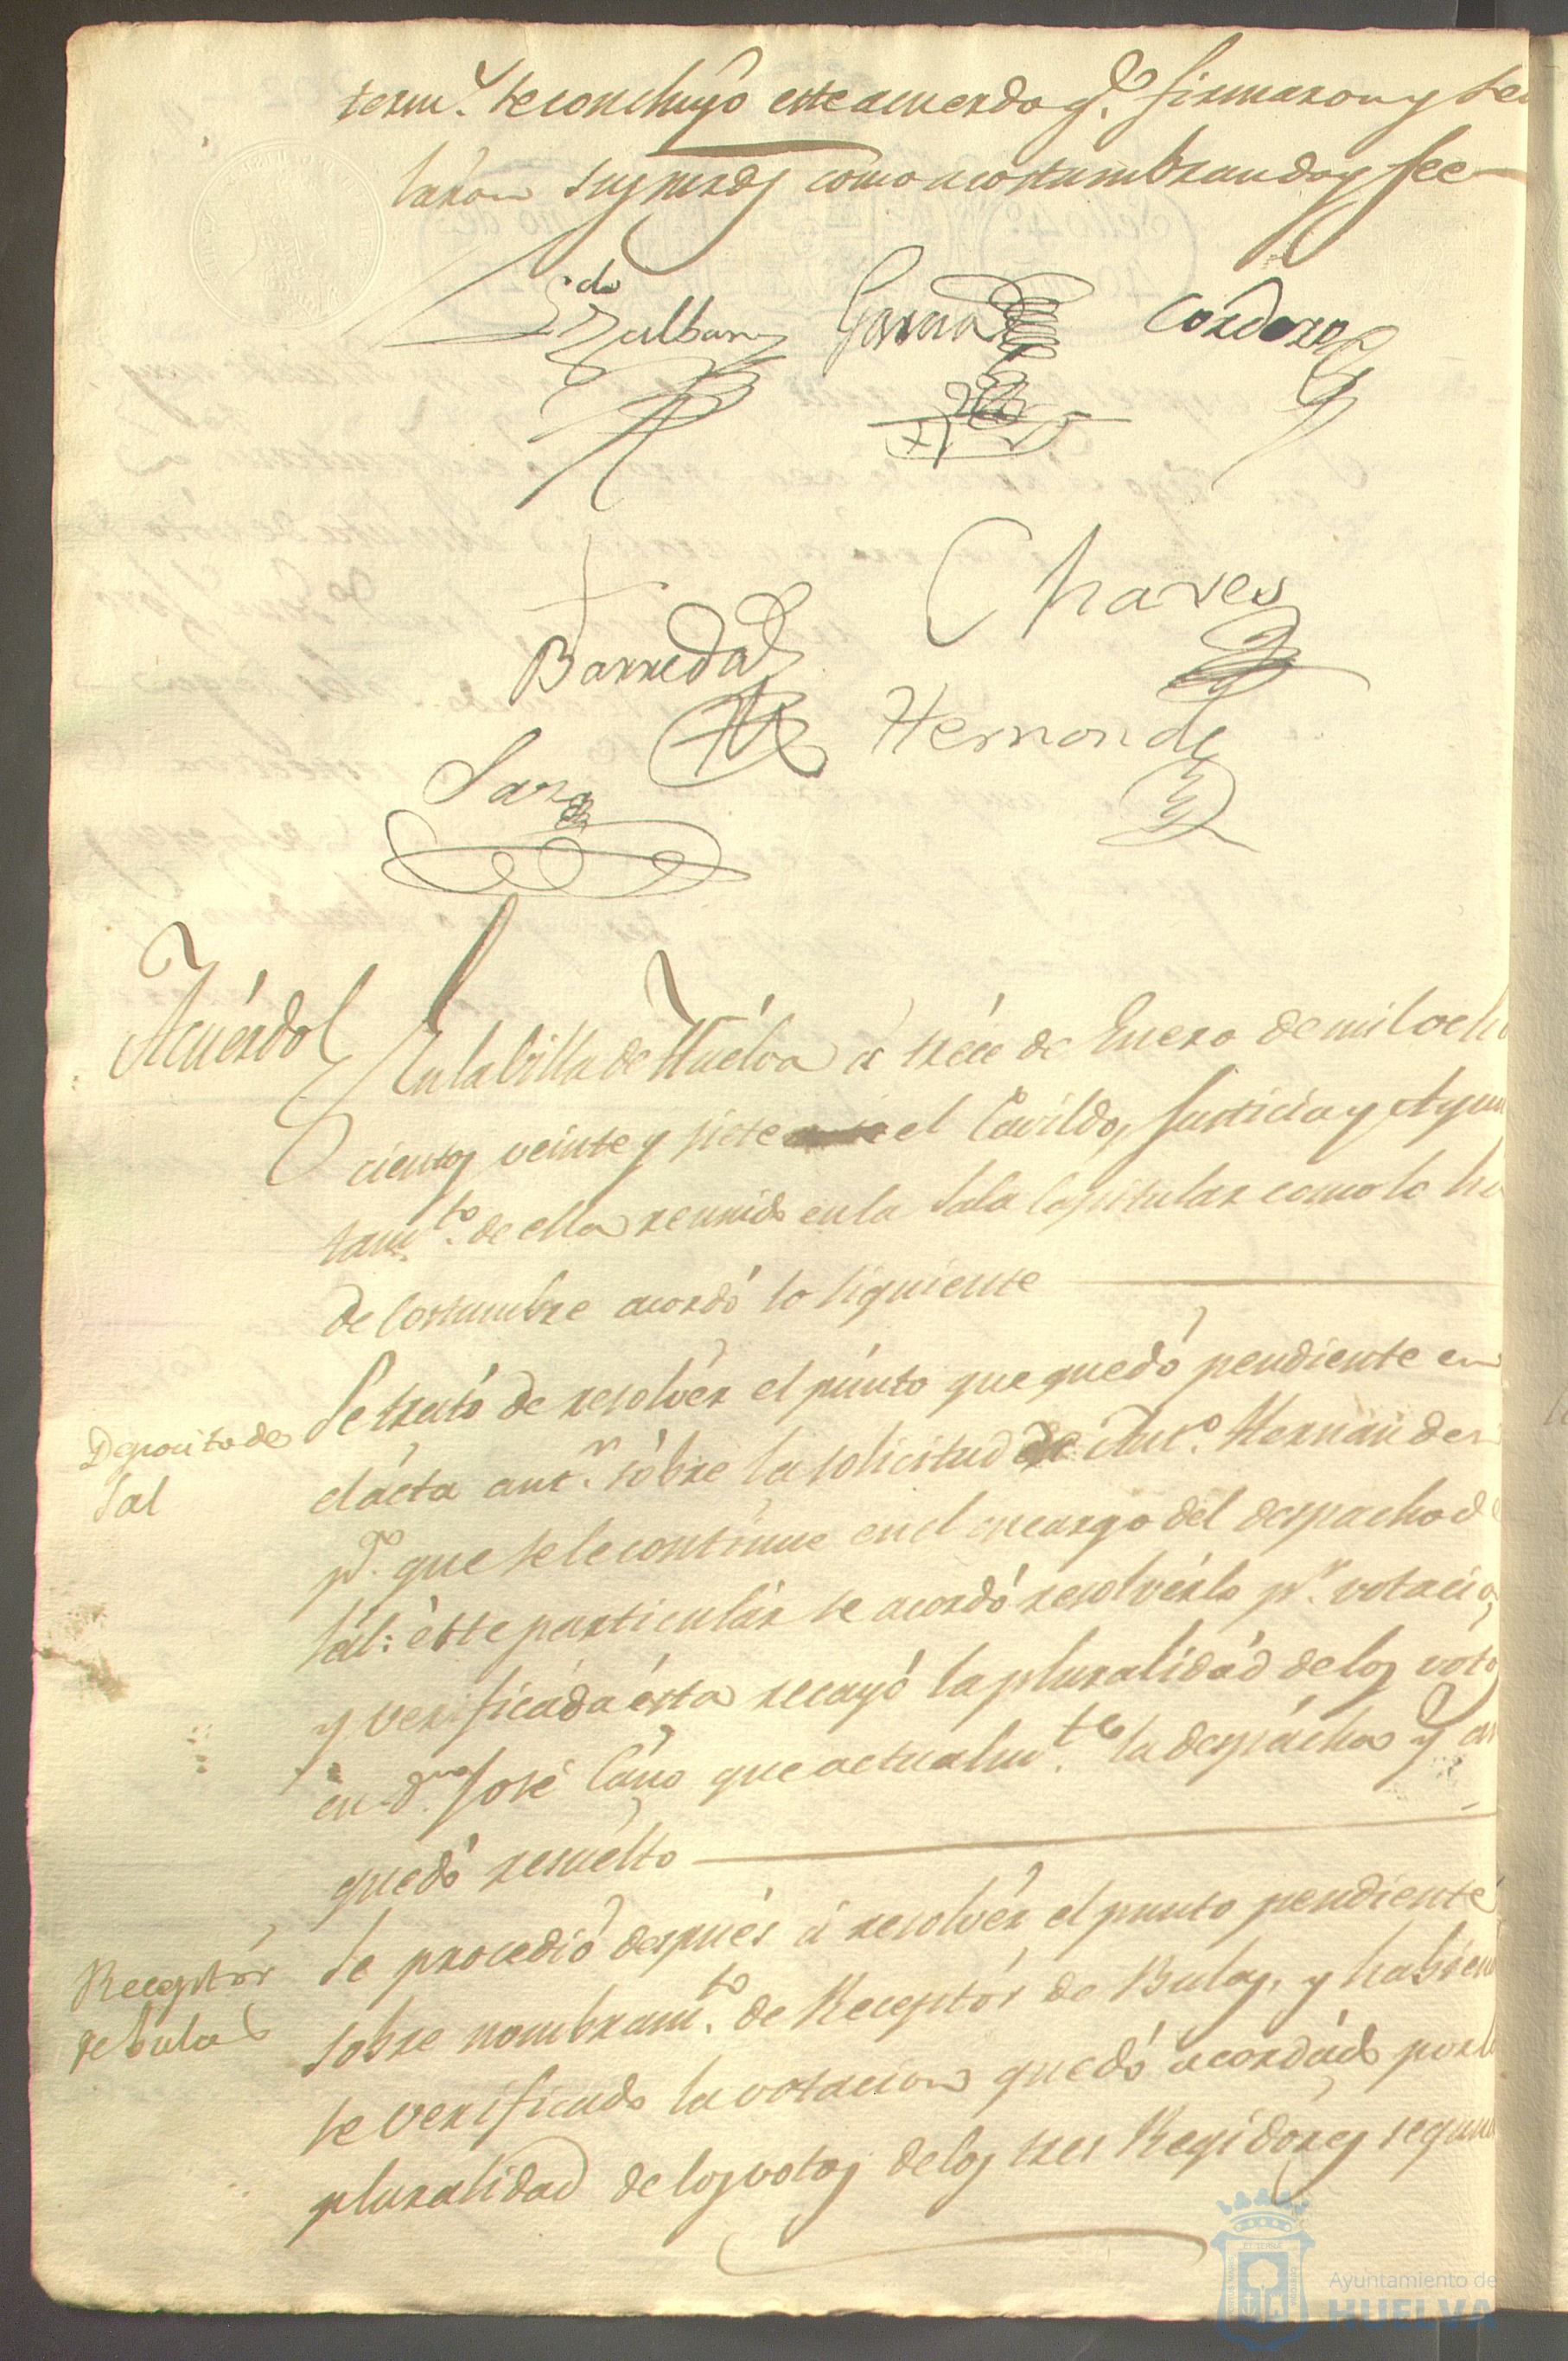 term.º se concluyó este acuerdo q.e firmaron y se
laron sus mrds como acostumbran doy fee
L.do Zalbany
Garcia
Cordero
Chaves
Barreda
Hernandz
Sanz
Acuérdo
En la Villa de Huélva á tréce de Enero de mil ocho
cientos veinte y siete el Cavildo, Justicia y Ayun
tam.to de ella reunido en la Sala Capitular como lo ha
de costumbre acordó lo siguiente
Deposito de
Sal
Se trató de resolvér el púnto que quedó pendiente en
el ácta ant.r sóbre la solicitud de Ant.o Hernández
p.a que se le continúe en el encargo del despacho de
sál: éste particulár se acordó resolvérlo p.r votació
y verificáda ésta recayó la pluralidád de los voto
en d.n José Cáno que actualm.te la despácha y asi
quedó resuélto
Receptór
de bulas
Se procedió despues á resolvér el punto pendiente
sobre nombram.to de Receptór de Bulas, y habiend
se verificado la votacion quedó acordádo por la
pluralidad de los votos de los tres Regidóres segun
Ayuntamiento de
HUELVA